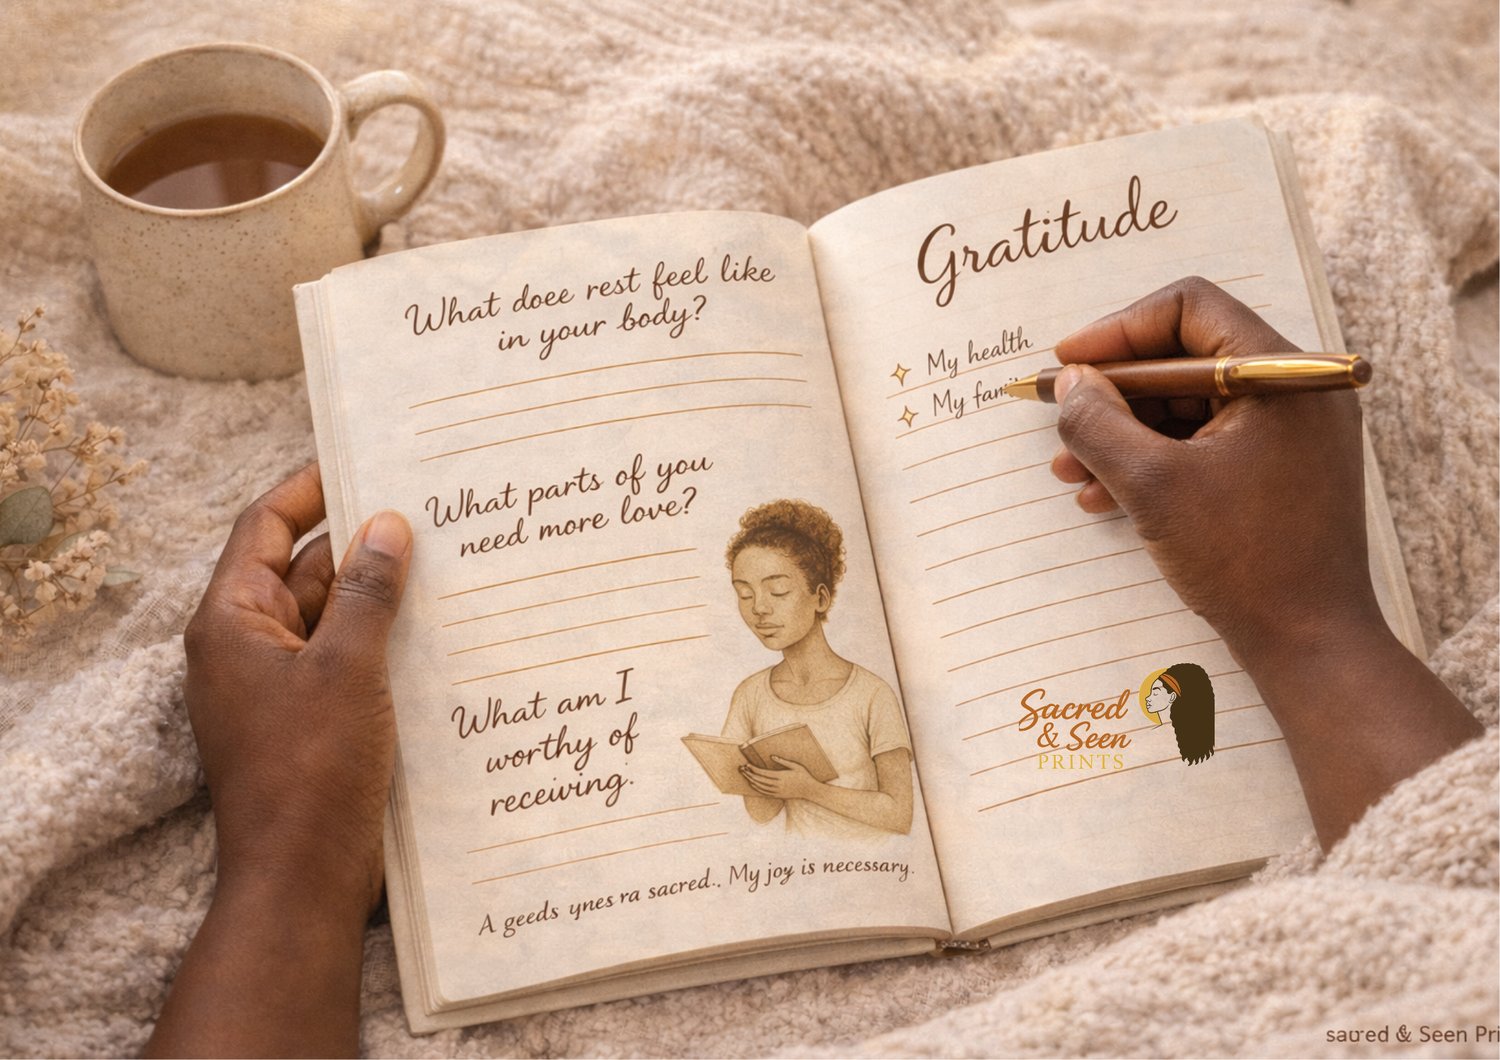 What doee rest feel like
in your body?
What parts of you
need more love?
What am I
worthy of
receiving.
A geeds ynes ra sacred.. My joy is necessary.
Gratitude
My health
My fam
Sacred
& Seen
PRINTS
saured & Seen Pri